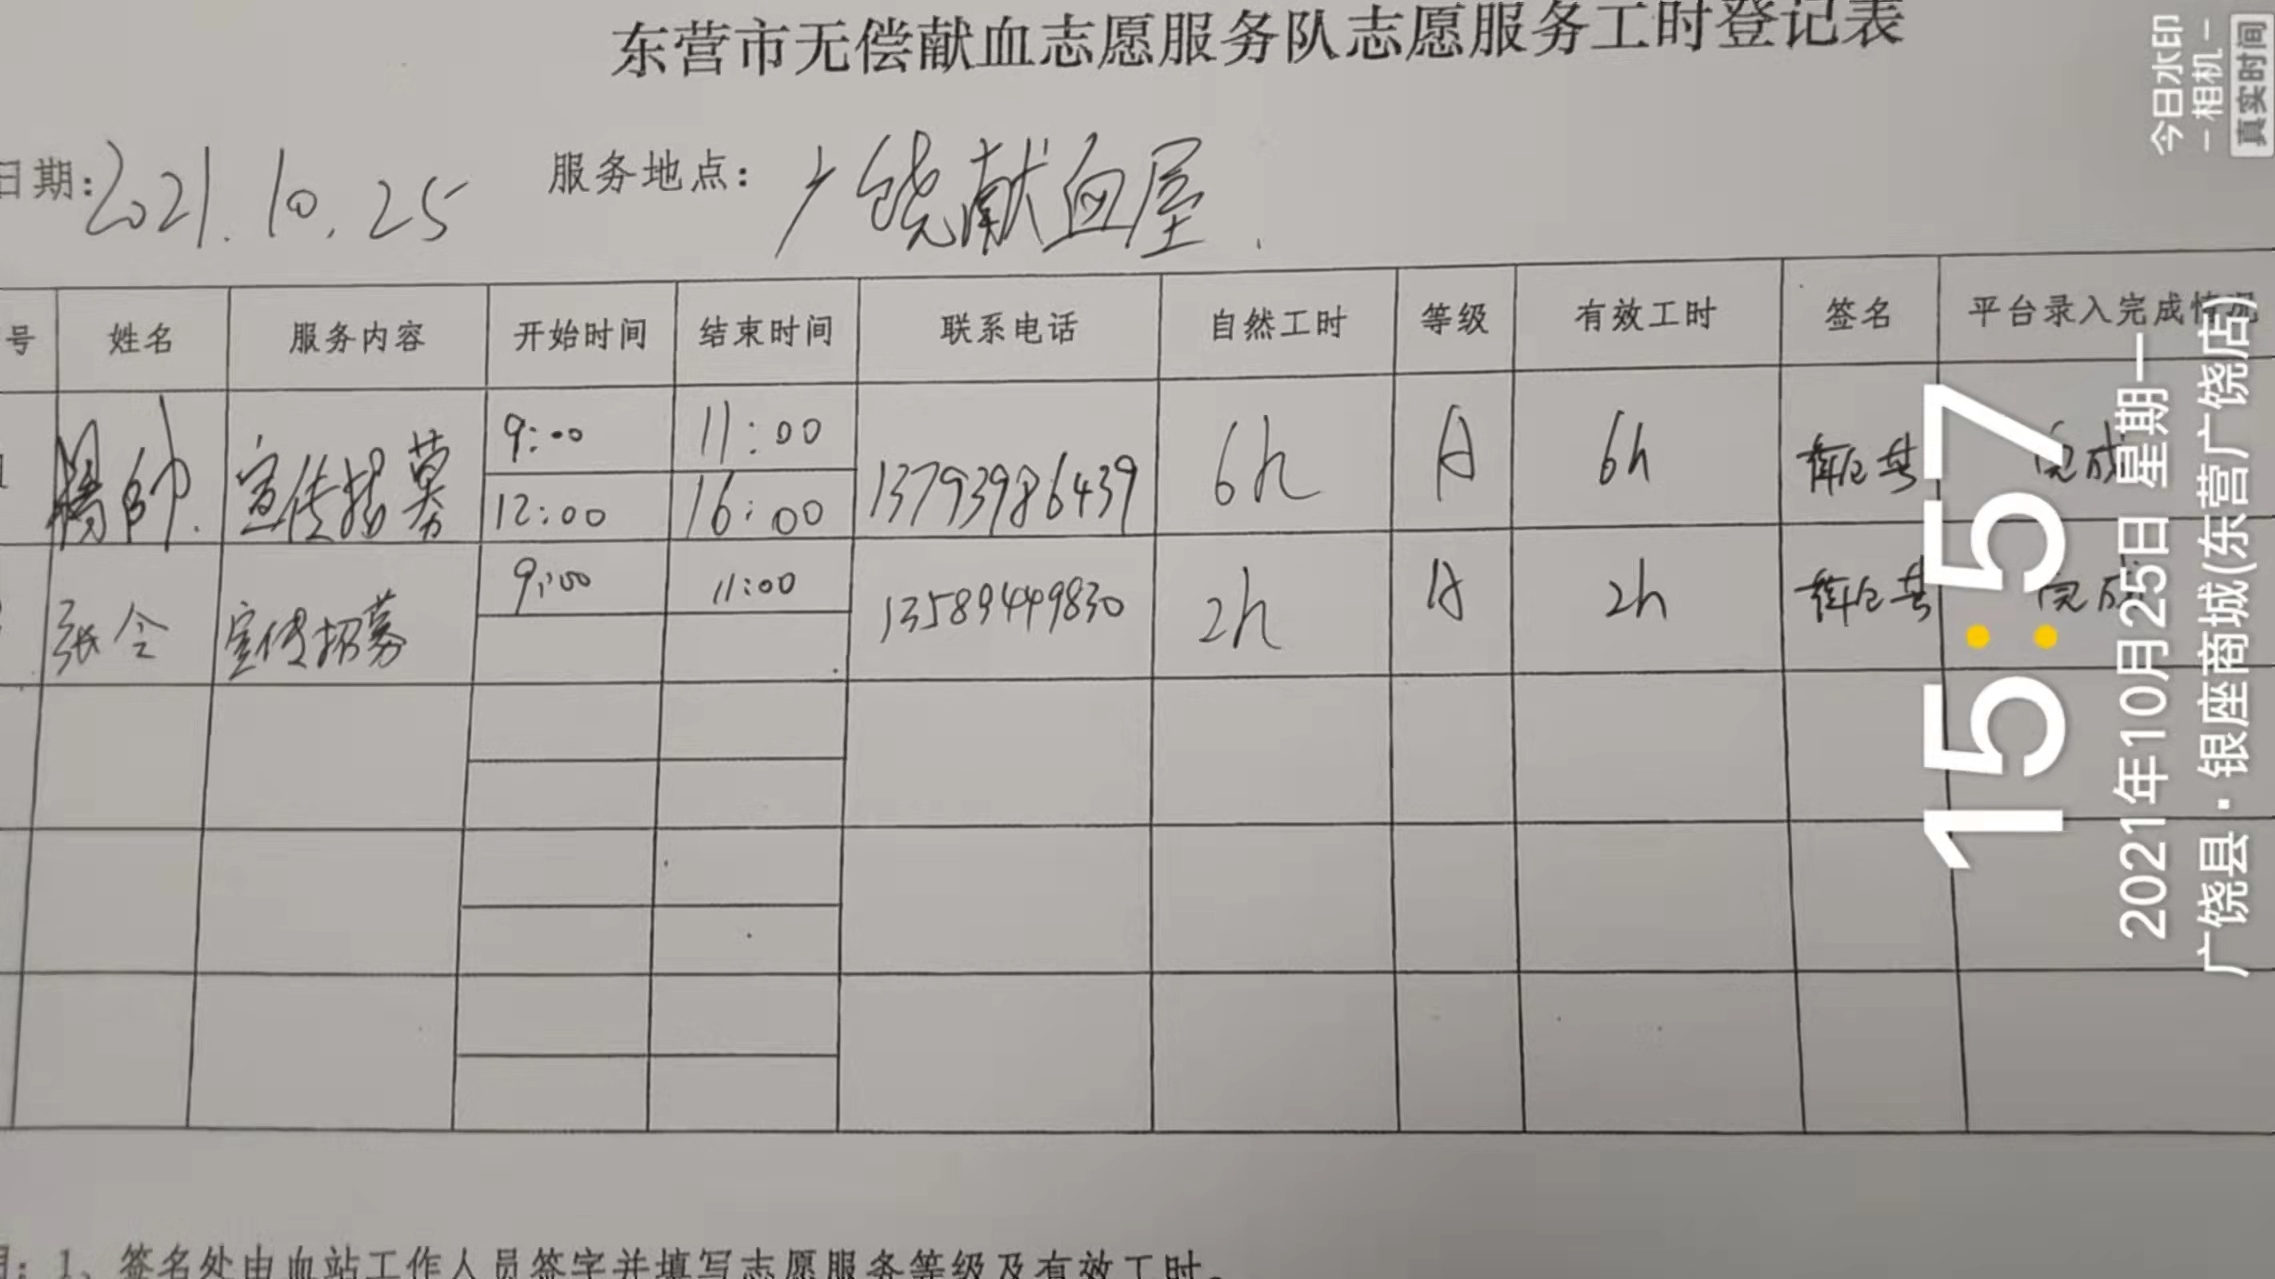 东营市无偿献血志愿服务队志愿服务工时登记表
日期:2021.10.25 服务地点: 广饶献血屋.
号 姓名 服务内容 开始时间 结束时间 联系电话 自然工时 等级 有效工时 签名 平台录入完成情况
1 杨帅 宣传招募 9:00 11:00 13793986439 6h A 6h 完成
12:00 16:00
张令 宣传招募 9:00 11:00 13589449830 2h A 2h 完成
1、签名处由血站工作人员签字并填写志愿服务等级及有效工时。
今日水印
-相机-
真实时间
15:57
2021年10月25日 星期一
广饶县·银座商城(东营广饶店)